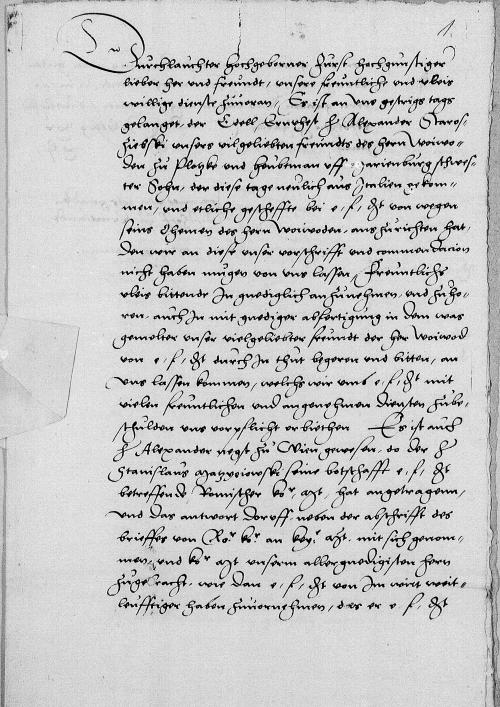 1.
Durchlauchter Hochgeborner Furst Hochgunstiger
lieber her und freundt, unsere freuntliche und vleis
willige dienste zuuoran, Es ist an uns gestrigs tags
gelanget der Edell Ernvhest h Alexander Staros-
ziebski unsers vilgeliebten freundts des hern Woiwo-
den zu Plotzke und heubtman uff Marienburg schwes
ter Sohn, der diese tage neulich aus Italien gekom-
men, und etliche gescheffte bei e, f, dt von wegen
seins Ohemen des hern Woiwoden, auszurichten hat,
den wir an diese unser vorschrifft und commendacion
nicht haben mugen von uns lassen, Freuntlichs
vleis bittende In gnediglich anzunehmen, und zuho-
ren, auch In mit gnediger abfertigung in dem was
gemelter unser vielgeliebter freundt der her Woiwod
von e, f, dt durch In thut begeren und bitten, an
uns lassen kommen, welchs wir umb e, f, dt mit
vielen freuntlichen und angenehmen diensten zube-
schulden uns vorpflicht erbiethen Es ist auch
h Alexander negst zu Wien gewesen, do der h
Stanislaus Maczyeiowski seine botschafft e, f, dt
betreffende Romischer kor Mt, hat angetragenn,
und das antwort doruff, neben der abschrifft des
brieffes von Ror kr an koy. Mt, mit sich genom-
men, und kor Mt unserm allergnedigisten hern
zugebracht, wie dan e, f, dt von Im wirt weit-
leufftiger haben zuuornehmen, das er e, f, dt